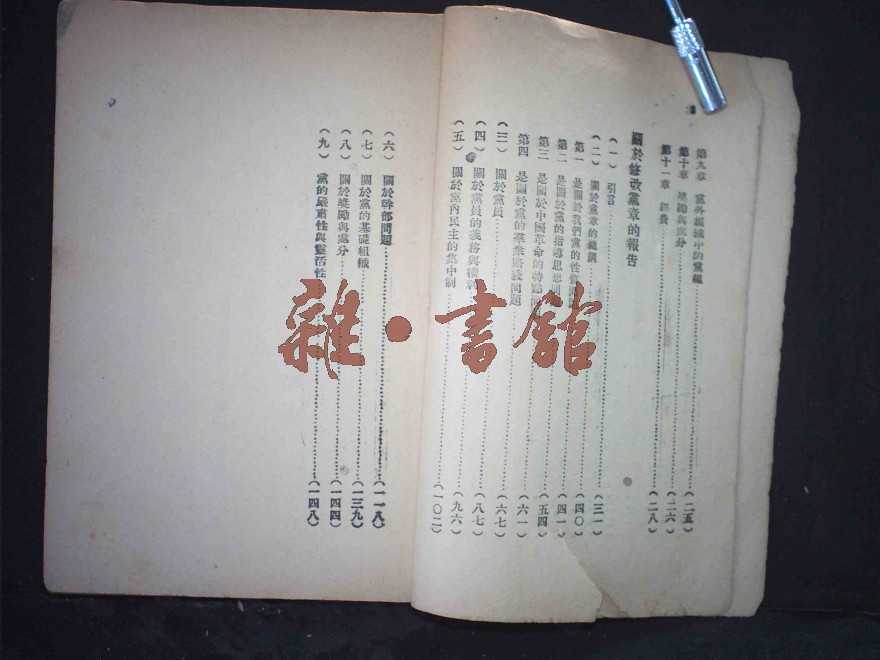 第九章 黨外組織中的黨組……(二五)
第十章 獎勵與處分……(二六)
第十一章 經費……(二八)
關於修改黨章的報告
(一) 引言
(二) 關於黨章的總綱……(三一)
第一 是關於我們黨的性質問題……(四〇)
第二 是關於黨的指導思想問……(四一)
第三 是關於中國革命的特點問……(五四)
第四 是關於黨的羣衆路綫問題……(六一)
(三) 關於黨員……(六七)
(四) 關於黨員的義務與權利……(八七)
(五) 關於黨內民主的集中制……(九六)
(一〇二)
(六) 關於幹部問題……(一一八)
(七) 關於黨的基礎組織……(一三九)
(八) 關於獎勵與處分……(一四四)
(九) 黨的嚴肅性與靈活性……(一四八)
雜·書館